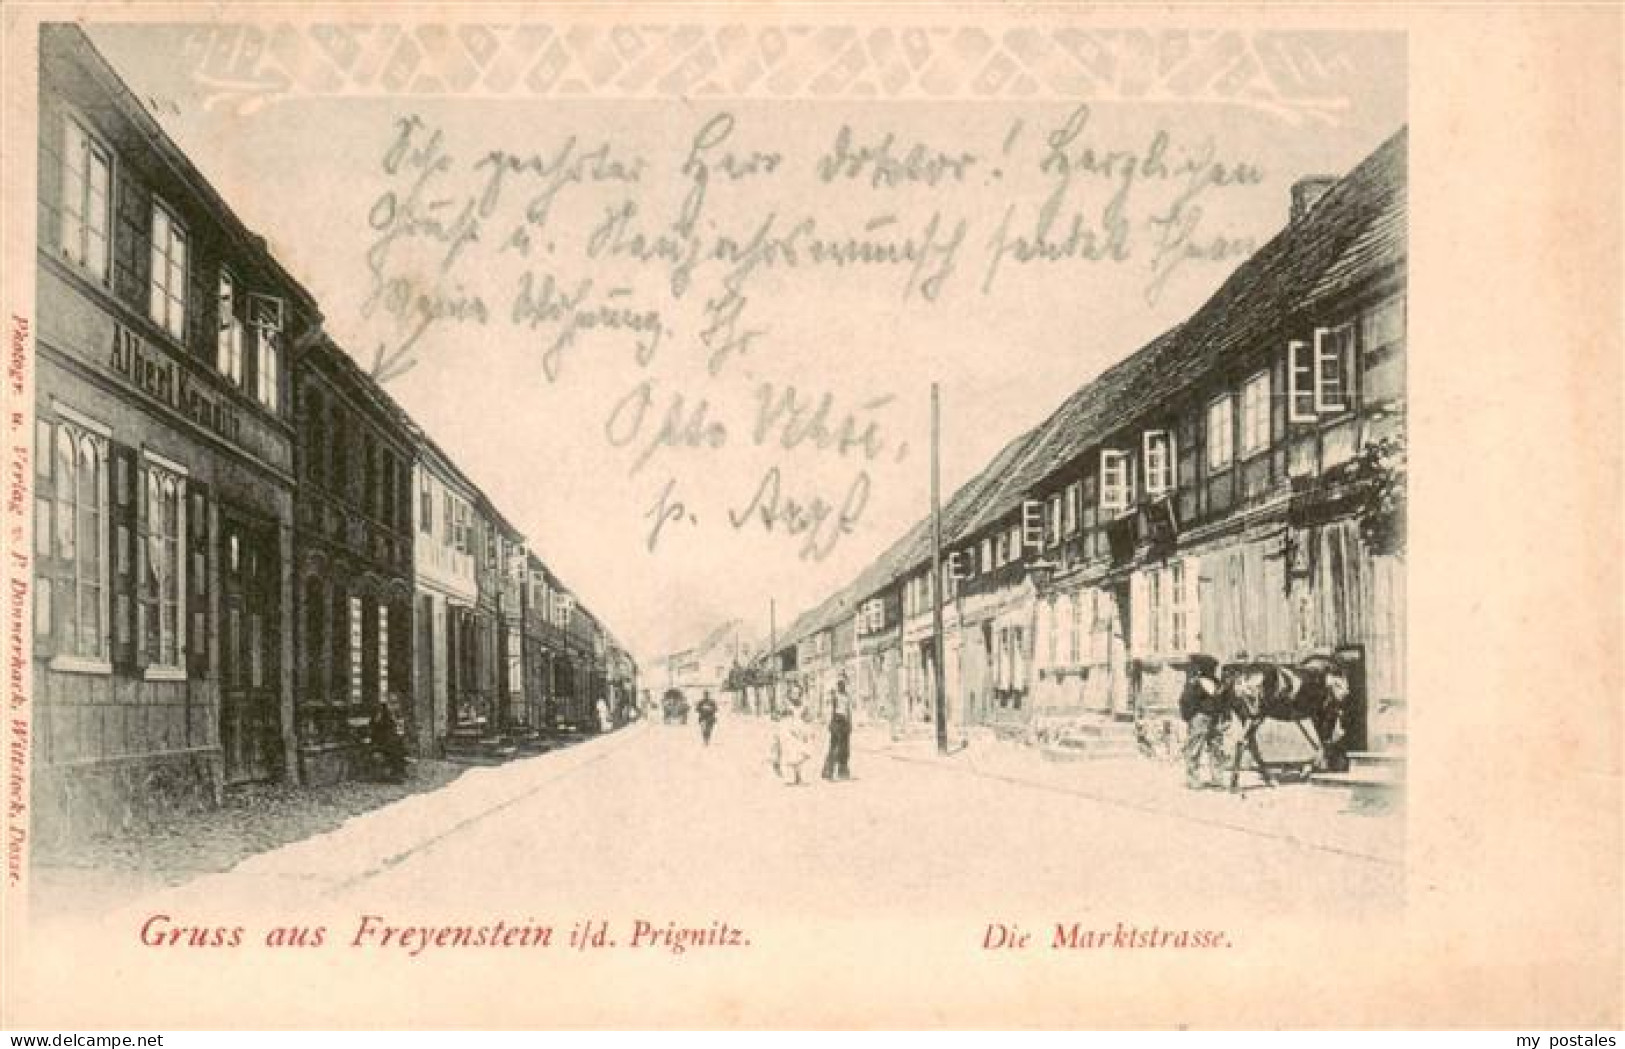 Sehr geehrter Herr Doktor! Herzlichen
Gruß u. Neujahrswunsch sendet Ihnen
Meine Wohnung. Ihr
Otto
p. Arzt
Albert
Photogr. u. Verlag v. P. Donnerhack, Wittstock, Dosse.
Gruss aus Freyenstein i/d. Prignitz.
Die Marktstrasse.
my postales